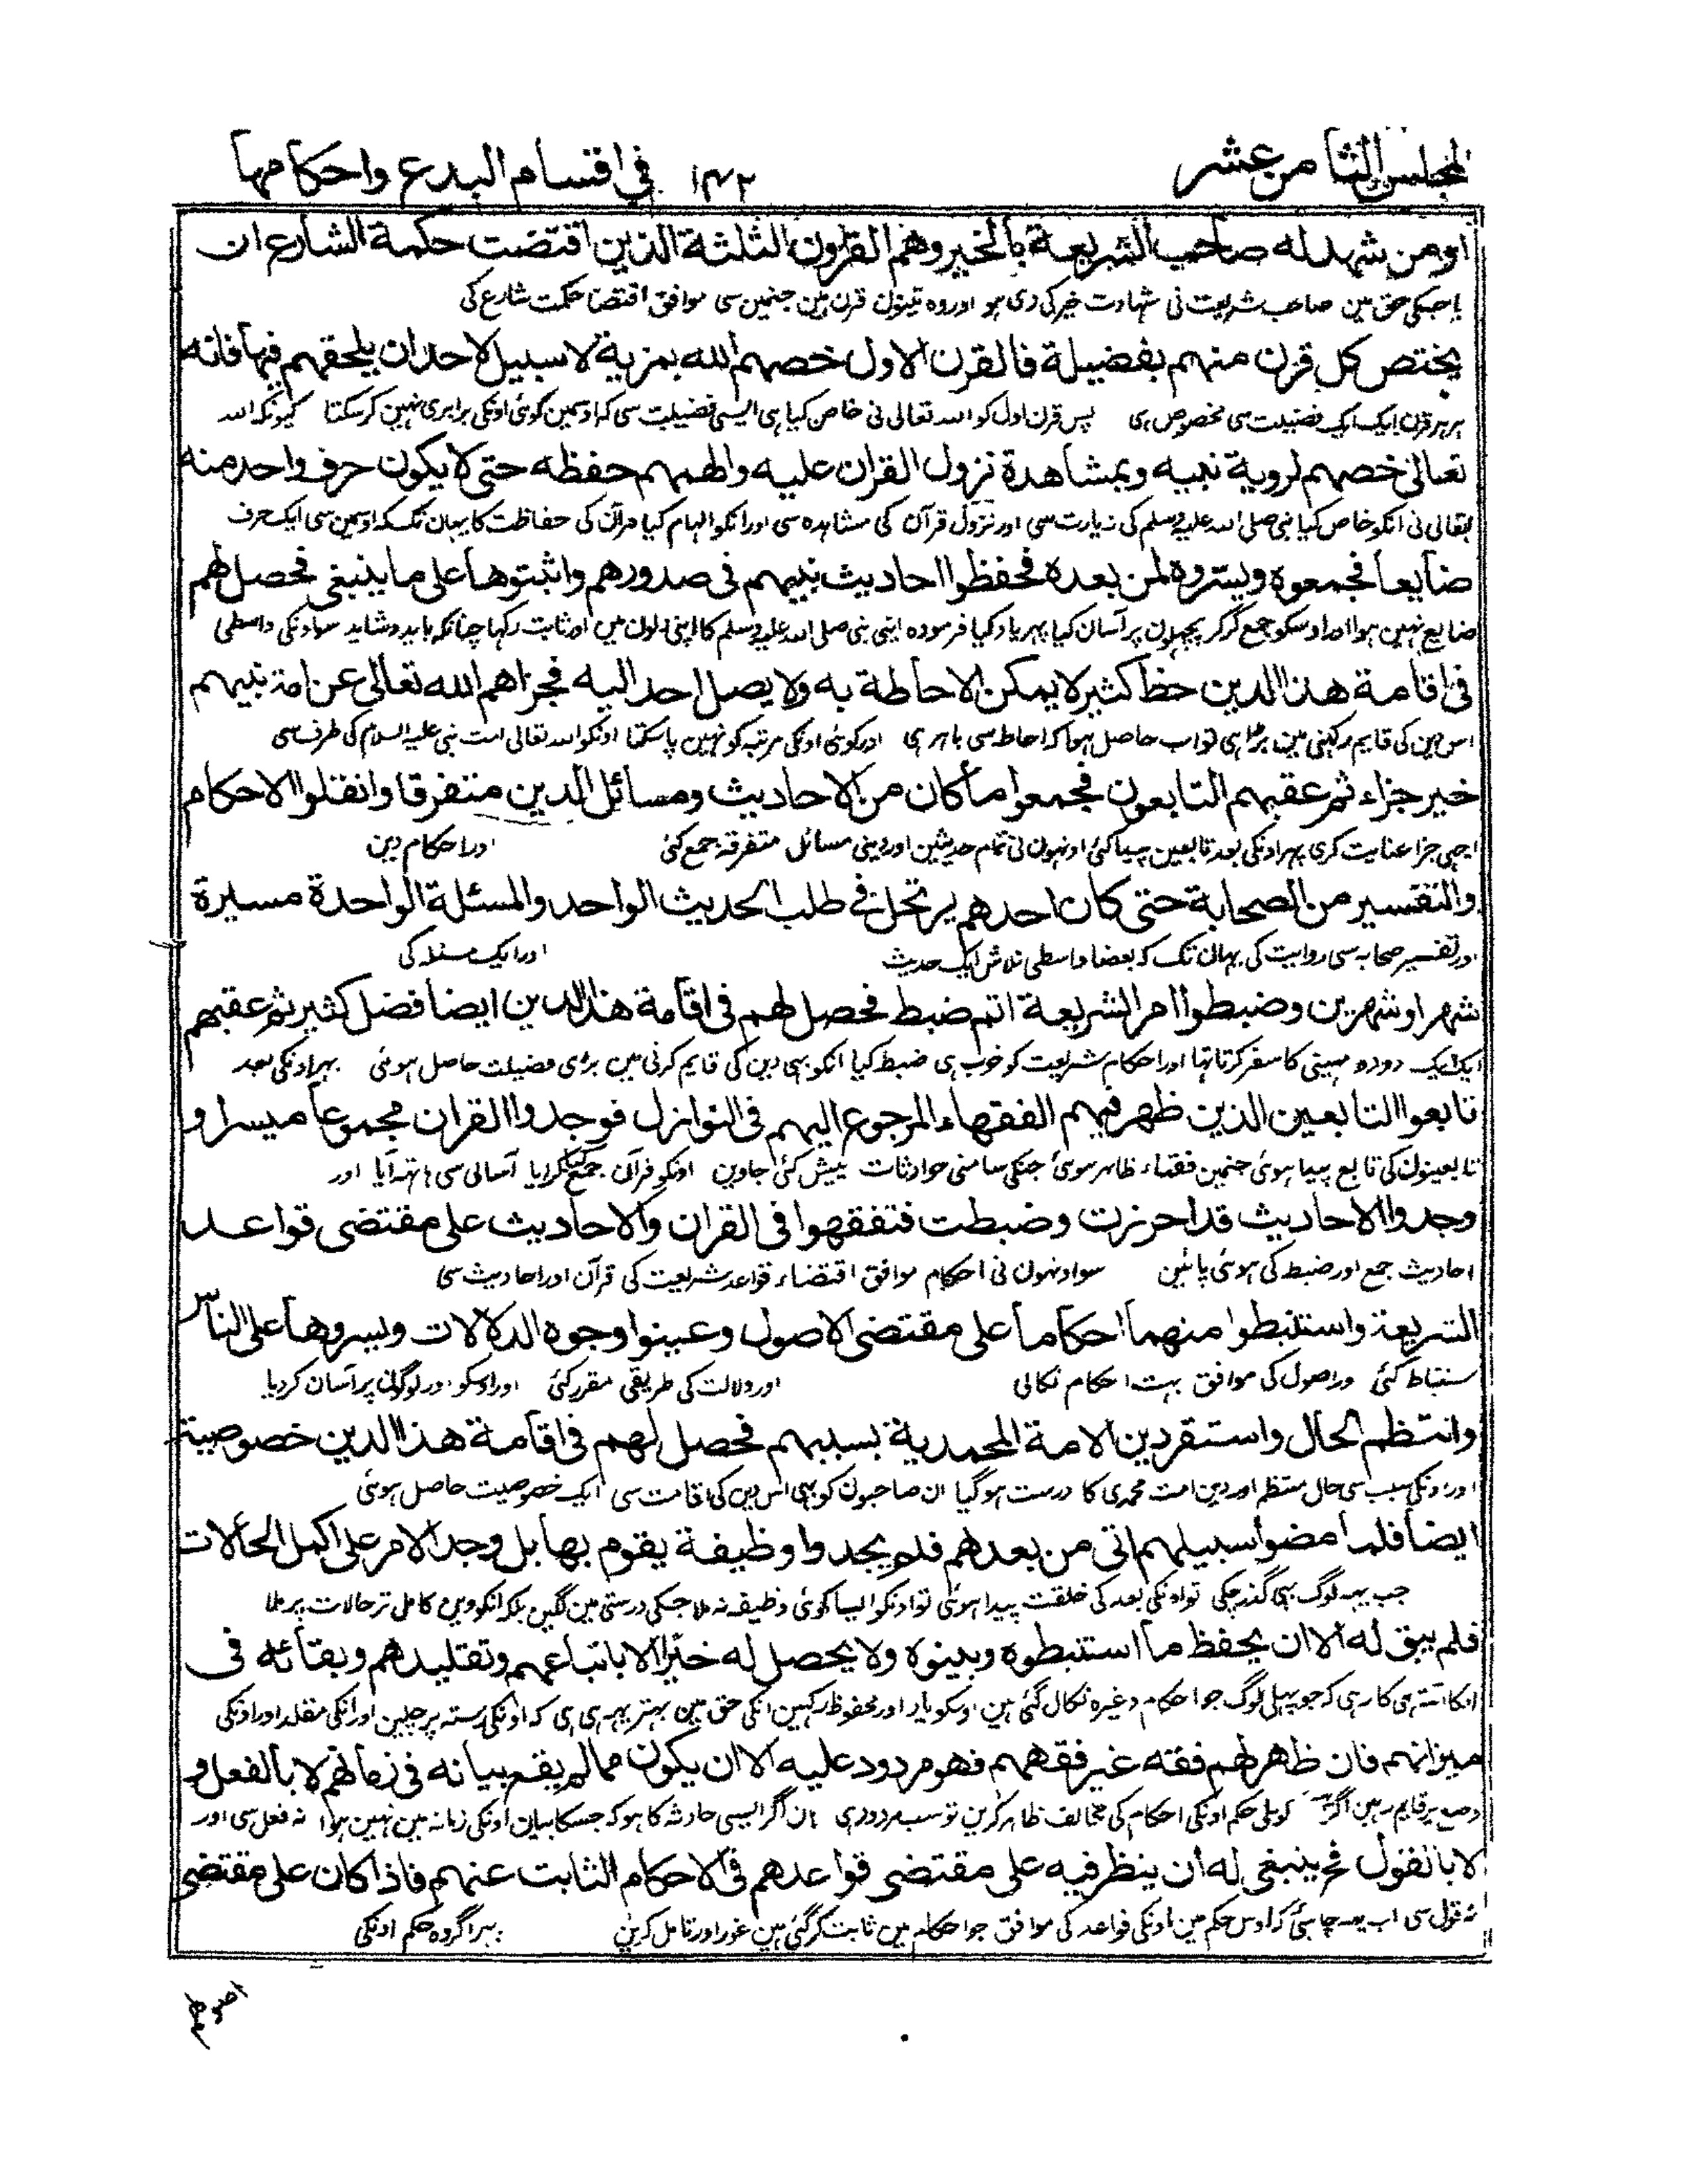 المجلس الثامن عشر ۱۴۲ في اقسام البدع واحكامها
او من شهد له صاحب الشريعة بالخير وهم القرون الثلثة الذين اقتضت حكمة الشارع ان
يا جسكى حق مين صاحب شريعت نى شهادت خير كى دى ہو اور وه تينون قرن ہين جنمين سى موافق اقتضا حكمت شارع كى
يختص كل قرن منهم بفضيلة فالقرن الاول خصهم الله بمزية لا سبيل لاحد ان يلحقهم فيها فانه
ہر ہر قرن ايك ايك فضيلت سى مخصوص ہى پس قرن اول كو الله تعالى نى خاص كيا ہى ايسى فضيلت سى كه اوسمين كوئى اونكى برابرى نہين كرسكتا كيونكه الله
تعالى خصهم لروية نبيه وبمشاهدة نزول القران عليه والهمهم حفظه حتى لا يكون حرف واحد منه
تعالى نى انكو خاص كيا نبى صلى الله عليه وسلم كى زيارت سى اور نزول قرآن كى مشاہده سى اور انكو الہام كيا قرآن كى حفاظت كا يہان تك كه اوسمين سى ايك حرف
ضايعا فجمعوه ويسروه لمن بعده فحفظوا احاديث نبيهم فى صدورهم واثبتوها على ما ينبغى فحصل لهم
ضايع نہين ہوا اور اوسكو جمع كركر پچھلون پر آسان كيا پہر ياد كيا فرموده اپنى نبى صلى الله عليه وسلم كا اپنى دلون مين اور ثابت ركہا چنانكه بايد وشايد سو اونكى واسطى
فى اقامة هذا الدين حظ كثير لا يمكن الاحاطة به ولا يصل احد اليه فجزاهم الله تعالى عن امة نبيهم
اس دين كى قايم ركہنى مين بڑا ہى ثواب حاصل ہوا كه احاطه سى باہر ہى اور كوئى اونكى مرتبه كو نہين پاسكتا اونكو الله تعالى امت نبى عليه السلام كى طرف سى
خير جزاء ثم عقبهم التابعون فجمعوا ما كان من الاحاديث ومسائل الدين متفرقا وانقلوا الاحكام
اچہى جزا عنايت كرى پہر اونكى بعد تابعين پيدا كئى اونہون نى تمام حديثين اور دينى مسائل متفرقه جمع كئى اور احكام دين
والتفسير من الصحابة حتى كان احدهم يرتحل فى طلب الحديث الواحد والمسئلة الواحدة مسيرة
اور تفسير صحابه سى روايت كى يہان تك كه بعضا واسطى تلاش ايك حديث اور ايك مسئله كى
شهر او شهرين وضبطوا امر الشريعة اتم ضبط فحصل لهم فى اقامة هذا الدين ايضا فضل كثير ثم عقبهم
ايك ايك دو دو مہينى كا سفر كرتا تہا اور احكام شريعت كو خوب ہى ضبط كيا انكو بہى دين كى قايم كرنى مين بڑى فضيلت حاصل ہوئى پہر اونكى بعد
تابعوا التابعين الذين ظهر فيهم الفقهاء المرجوع اليهم فى النوازل فوجدوا القران مجموعا ميسرا و
تابعينون كى تابع پيدا ہوئى جنمين فقهاء ظاہر ہوئى جنكى سامنى حوادثات پيش كئى جاوين اونكو قرآن جمع آسانى سى ہاتہ آيا اور
وجدوا الاحاديث قد احرزت وضبطت فتفقهوا فى القران والاحاديث على مقتضى قواعد
احاديث جمع اور ضبط كى ہوئى پائين سو اونہون نى احكام موافق اقتضاء قواعد شريعت كى قرآن اور احاديث سى
الشريعة واستنبطوا منهما احكاما على مقتضى الاصول وعينوا وجوه الدلالات ويسروها على الناس
استنباط كئى اور اصول كى موافق بہت احكام نكالى اور دلالت كى طريقى مقرر كئى اور اوسكو اور لوگون پر آسان كرديا
وانتظم الحال واستقر دين الامة المحمدية بسببهم فحصل لهم فى اقامة هذا الدين خصوصية
اور اونكى سبب سى حال منتظم اور دين امت محمدى كا درست ہوگيا ان صاحبون كو بہى اس دين كى اقامت سى ايك خصوصيت حاصل ہوئى
ايضا فلما مضوا سبيلهم اتى من بعدهم فلم يجدوا وظيفة يقوم بها بل وجد الامر على اكمل الحالات
جب يہه لوگ بہى گذر چكى تو اونكى بعد كى خلقت پيدا ہوئى تو اونكو ايسا كوئى وظيفه نه ملا جسكى درستى مين لگين بلكه انكو دين كامل تر حالات پر ملا
فلم يبق له الا ان يحفظ ما استنبطوه وبينوه ولا يحصل له خير الا باتباعهم وتقليدهم وبقائه فى
انكا اتنا ہى كار ہى كه جو پہلى لوگ جو احكام وغيره نكال گئى ہين اوسكو ياد اور محفوظ ركہين انكى حق مين بہتر يہه ہى كه اونكى رسته پر چلين اور انكى مقلد اور اونكى
ميزانهم فان ظهر لهم فقه غير فقههم فهو مردود عليه الا ان يكون مما لم يقع بيانه فى زمانهم لا بالفعل و
وضع پر قايم رہين اگر كوئى حكم اونكى احكام كى مخالف ظاہر كرين تو سب مردود ہى ہان اگر ايسى حادثه كا ہو كه جسكا بيان اونكى زمانه مين نہين ہوا نه فعل سى اور
لا بالقول فح ينبغى له ان ينظر فيه على مقتضى قواعدهم فى الاحكام الثابت عنهم فاذا كان على مقتضى
نه قول سى اب يہه چاہئى كه اوس حكم مين اونكى قواعد كى موافق جو احكام مين ثابت كرگئى ہين غور اور تامل كرين پہر اگر وه حكم اونكى
اصولهم